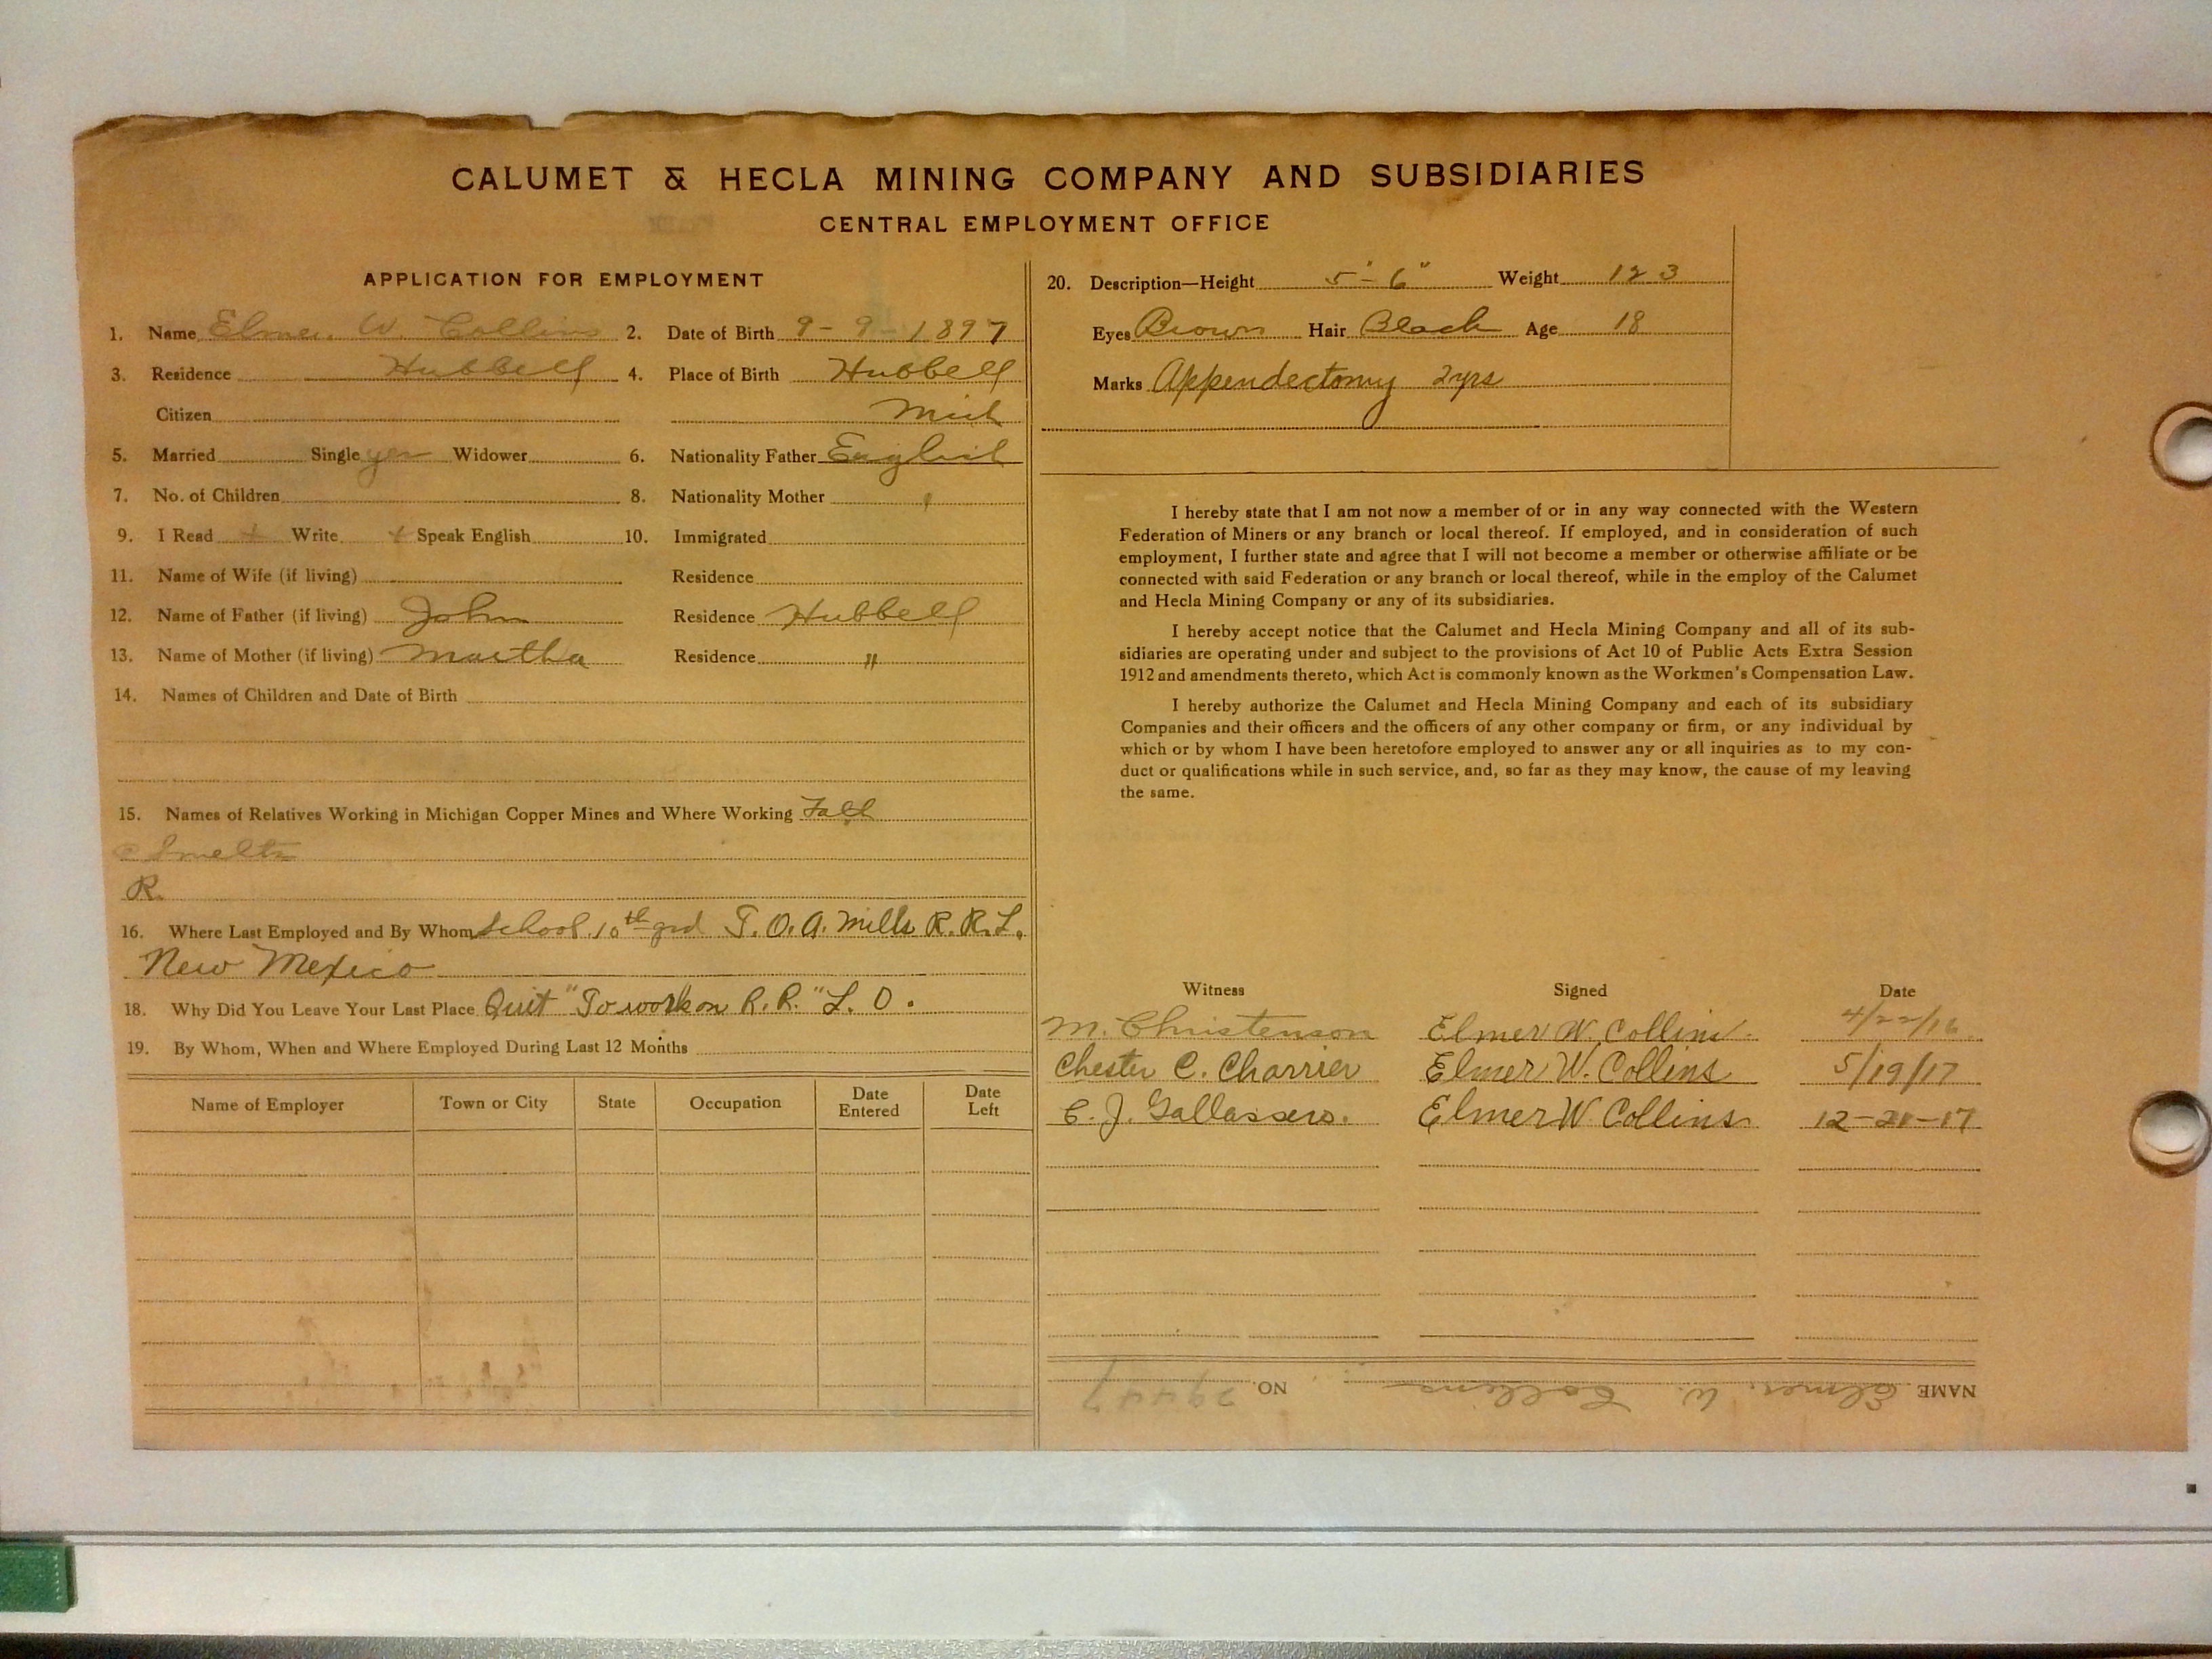 CALUMET & HECLA MINING COMPANY AND SUBSIDIARIES
CENTRAL EMPLOYMENT OFFICE
APPLICATION FOR EMPLOYMENT
1. Name Elmer W. Collins 2. Date of Birth 9-9-1897
3. Residence Hubbell 4. Place of Birth Hubbell
Citizen Mich
5. Married Single yes Widower 6. Nationality Father English
7. No. of Children 8. Nationality Mother "
9. I Read + Write + Speak English 10. Immigrated
11. Name of Wife (if living) Residence
12. Name of Father (if living) John Residence Hubbell
13. Name of Mother (if living) Martha Residence "
14. Names of Children and Date of Birth
15. Names of Relatives Working in Michigan Copper Mines and Where Working Fath
Smelter
R.
16. Where Last Employed and By Whom School 10th grd T. O. A. Mills R. R. L.
New Mexico
18. Why Did You Leave Your Last Place Quit "To work on R. R." L. O.
19. By Whom, When and Where Employed During Last 12 Months
Name of Employer Town or City State Occupation Date Entered Date Left
20. Description—Height 5'-6" Weight 123
Eyes Brown Hair Black Age 18
Marks Appendectomy 2yrs
I hereby state that I am not now a member of or in any way connected with the Western
Federation of Miners or any branch or local thereof. If employed, and in consideration of such
employment, I further state and agree that I will not become a member or otherwise affiliate or be
connected with said Federation or any branch or local thereof, while in the employ of the Calumet
and Hecla Mining Company or any of its subsidiaries.
I hereby accept notice that the Calumet and Hecla Mining Company and all of its sub-
sidiaries are operating under and subject to the provisions of Act 10 of Public Acts Extra Session
1912 and amendments thereto, which Act is commonly known as the Workmen's Compensation Law.
I hereby authorize the Calumet and Hecla Mining Company and each of its subsidiary
Companies and their officers and the officers of any other company or firm, or any individual by
which or by whom I have been heretofore employed to answer any or all inquiries as to my con-
duct or qualifications while in such service, and, so far as they may know, the cause of my leaving
the same.
Witness Signed Date
M. Christenson Elmer W. Collins 4/22/16
Chester C. Charrier Elmer W. Collins 5/19/17
C. J. Elmer W Collins 12-21-17
NAME Elmer W. Collins NO. 29447